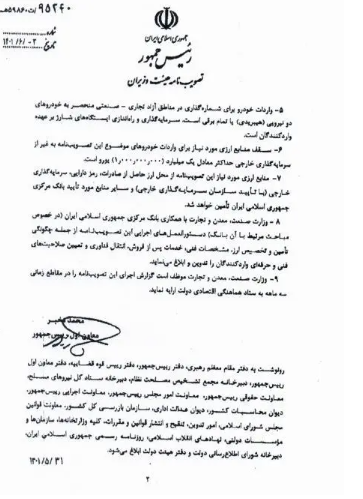 ۹۵۲۴۰/ت۵۹۸۶۰هـ
شماره
۱۴۰۱/۶/۰۲
تاریخ
جمهوری اسلامی ایران
رئیس جمهور
تصویب نامه هیئت وزیران
۵- واردات خودرو برای شماره‌گذاری در مناطق آزاد تجاری - صنعتی منحصر به خودروهای
دو نیرویی (هیبریدی) یا تمام برقی است. سرمایه‌گذاری و راه‌اندازی ایستگاه‌های شارژ بر عهده
واردکنندگان است.
۶- سقف منابع ارزی مورد نیاز برای واردات خودروهای موضوع این تصویب‌نامه به غیر از
سرمایه‌گذاری خارجی حداکثر معادل یک میلیارد (۱,۰۰۰,۰۰۰,۰۰۰) یورو است.
۷- منابع ارزی مورد نیاز این تصویب‌نامه از محل ارز حاصل از صادرات، رمز دارایی، سرمایه‌گذاری
خارجی (با تأیید سازمان سرمایه‌گذاری خارجی) و سایر منابع مورد تأیید بانک مرکزی
جمهوری اسلامی ایران تأمین خواهد شد.
۸- وزارت صنعت، معدن و تجارت با همکاری بانک مرکزی جمهوری اسلامی ایران (در خصوص
مباحث مرتبط با آن بانک) دستورالعمل‌های اجرایی این تصویب‌نامه از جمله چگونگی
تأمین و تخصیص ارز، مشخصات فنی، خدمات پس از فروش، انتقال فناوری و تعیین صلاحیت‌های
فنی و حرفه‌ای واردکنندگان را تدوین و ابلاغ می‌نماید.
۹- وزارت صنعت، معدن و تجارت موظف است گزارش اجرای این تصویب‌نامه را در مقاطع زمانی
سه ماهه به ستاد هماهنگی اقتصادی دولت ارایه نماید.
محمد مخبر
معاون اول رییس جمهور
رونوشت به دفتر مقام معظم رهبری، دفتر رییس‌جمهور، دفتر رییس قوه قضاییه، دفتر معاون اول
رییس‌جمهور، دبیرخانه مجمع تشخیص مصلحت نظام، دبیرخانه ستاد کل نیروهای مسلح،
معاونت حقوقی رییس‌جمهور، معاونت امور مجلس رییس‌جمهور، معاونت اجرایی رییس‌جمهور،
دیوان محاسبات کشور، دیوان عدالت اداری، سازمان بازرسی کل کشور، معاونت قوانین
مجلس شورای اسلامی، امور تدوین، تنقیح و انتشار قوانین و مقررات، کلیه وزارتخانه‌ها، سازمان‌ها و
مؤسسات دولتی، نهادهای انقلاب اسلامی، روزنامه رسمی جمهوری اسلامی ایران،
دبیرخانه شورای اطلاع‌رسانی دولت و دفتر هیئت دولت ابلاغ می‌شود.
۱۴۰۱/۵/۳۱
۲